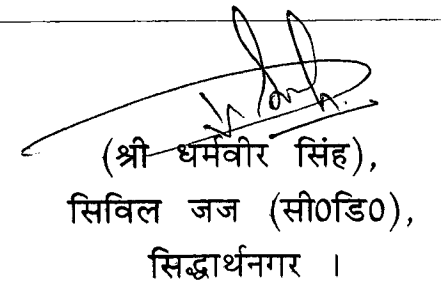 (श्री धर्मवीर सिंह),
सिविल जज (सी0डि0),
सिद्धार्थनगर ।